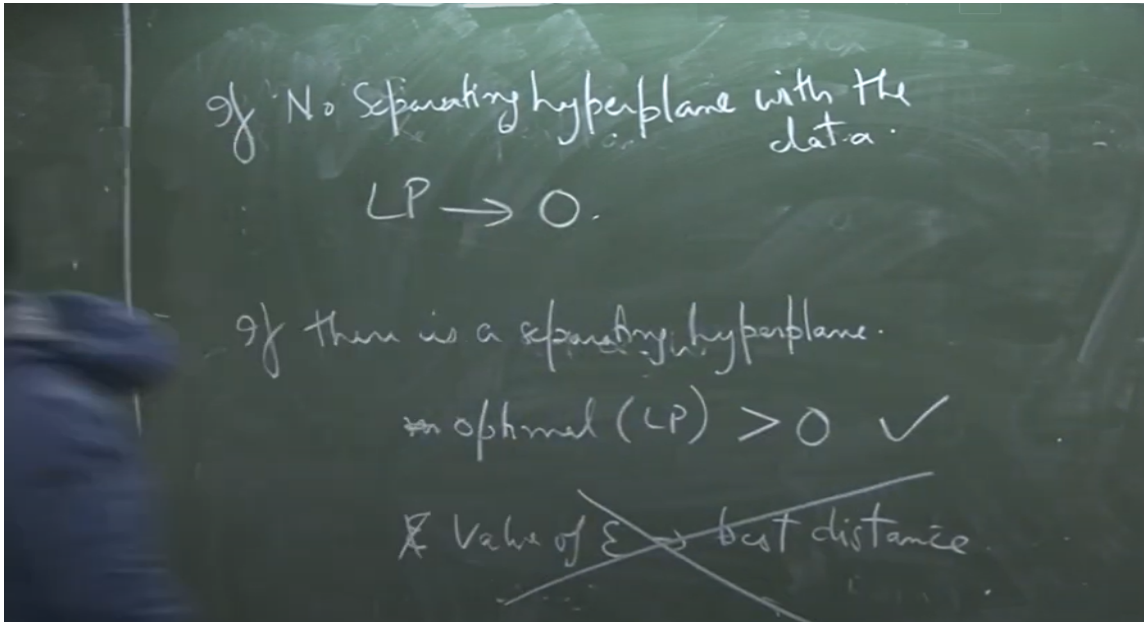 If No Separating hyperplane with the
data.
LP → 0.
If there is a separating hyperplane.
optimal (LP) > 0 ✓
Value of ε → best distance